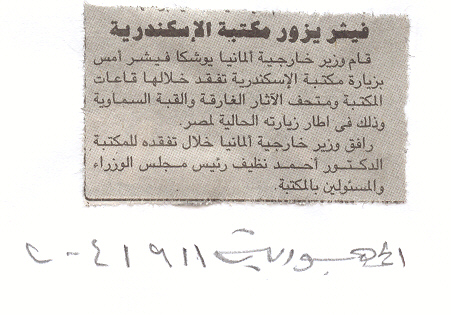 فيشر يزور مكتبة الإسكندرية
قام وزير خارجية ألمانيا يوشكا فيشر أمس
بزيارة مكتبة الإسكندرية تفقد خلالها قاعات
المكتبة ومتحف الآثار الغارقة والقبة السماوية
وذلك فى اطار زيارته الحالية لمصر.
رافق وزير خارجية ألمانيا خلال تفقده للمكتبة
الدكتور أحمد نظيف رئيس مجلس الوزراء
والمسئولين بالمكتبة.
الجمهورية